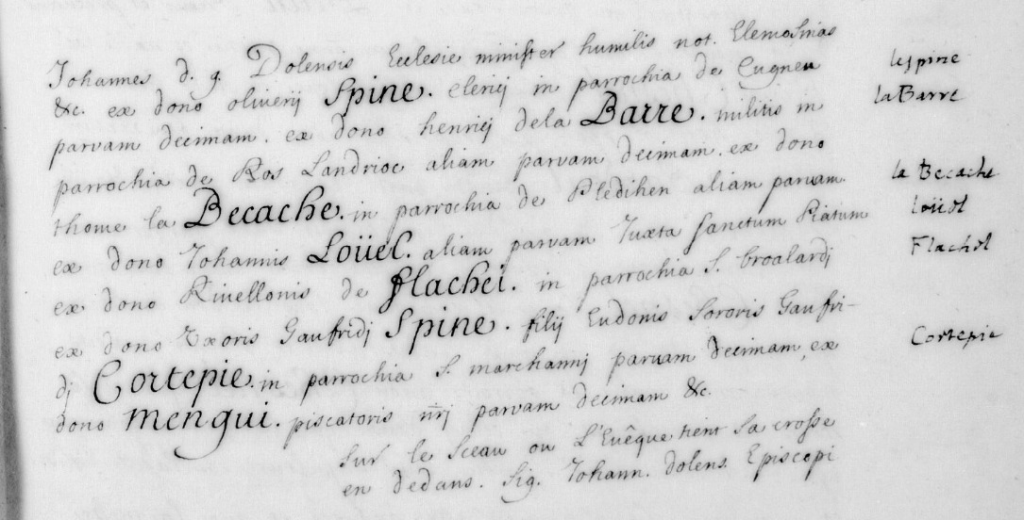 Johannes d. g. Dolensis Ecclesie minister humilis not. Elemosinas
&c. ex dono oliverij Spine. clerici in parrochia de Cugneu
lespine
parvam decimam. ex dono henrici dela Barre. militis in
la Barre
parrochia de Ros Landrioc aliam parvam decimam. ex dono
thome la Becache. in parrochia de Pledihen aliam parvam
la Becache
ex dono Johannis Loüel. aliam parvam Juxta sanctum Piatum
Loüel
ex dono Rivellonis de flachei. in parrochia S. broalardj
Flachel
ex dono Uxoris Gaufridj Spine. filij Eudonis Sororis Gaufri-
dj Cortepie. in parrochia S. marchannj parvam decimam, ex
Cortepie
dono mengui. piscatoris nrj parvam decimam &c.
sur le sceau ou L'Evêque tient sa crosse
en dedans. Sig. Johann. dolens. Episcopi